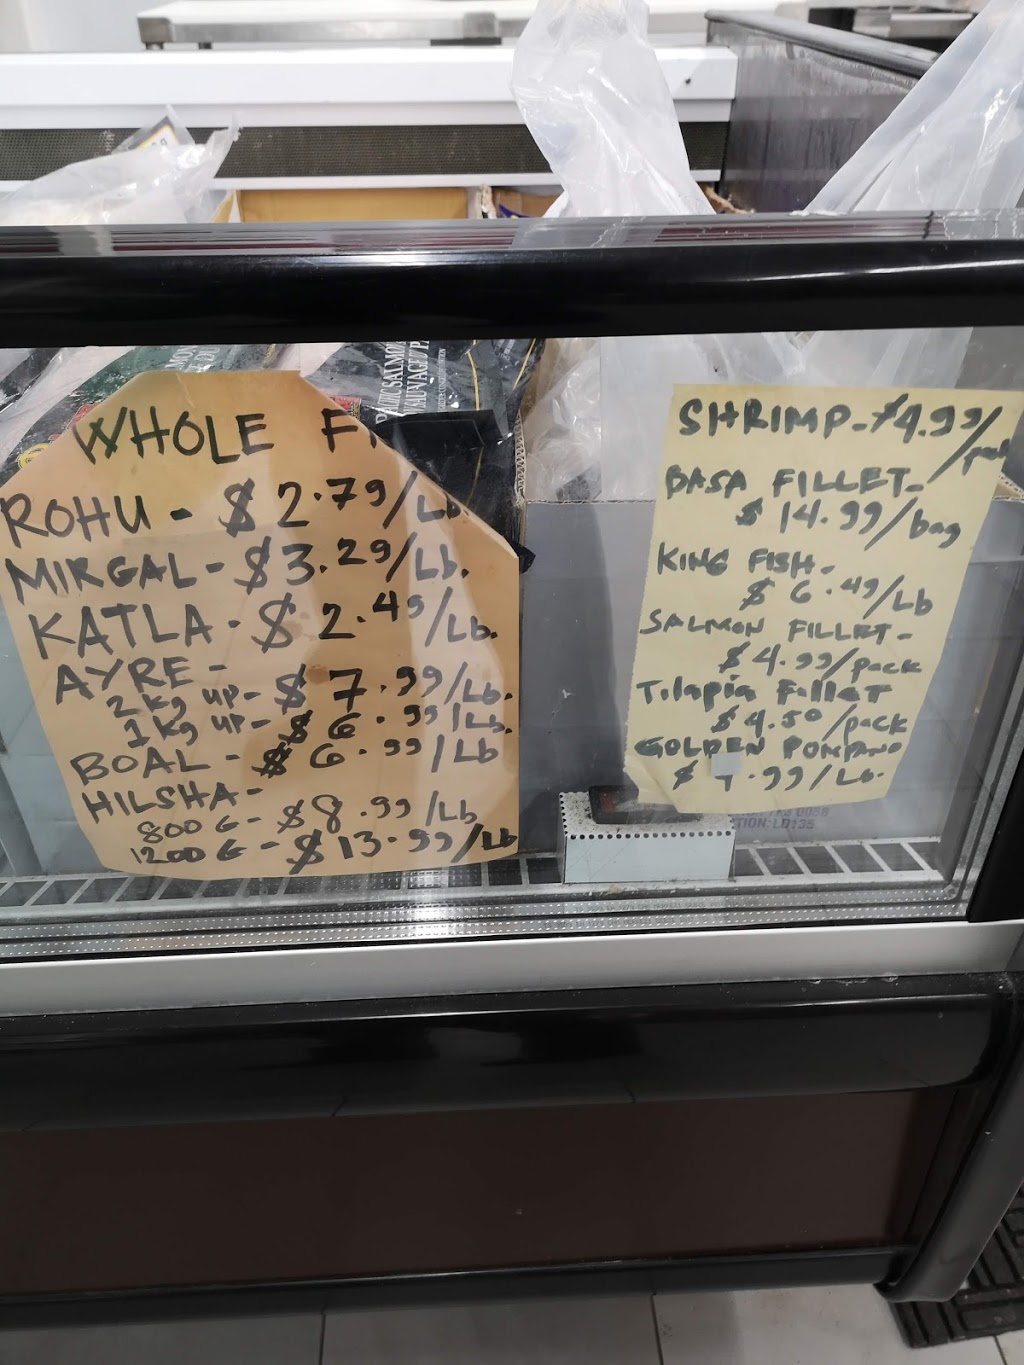 WHOLE
ROHU - $2.79/Lb
MIRGAL - $3.29/Lb.
KATLA - $2.49/Lb.
AYRE -
2 kg up - $7.99/Lb.
1 kg up - $6.99/Lb.
BOAL - $6.99/Lb
HILSHA -
800 G - $8.99/Lb
1200 G - $13.99/Lb
SHRIMP - $4.99/
BASA FILLET -
$14.99/bag
KING FISH -
$6.49/Lb
SALMON FILLET -
$4.99/pack
Tilapia Fillet
$4.50/pack
GOLDEN POMPANO